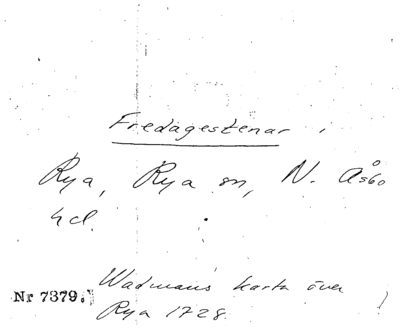 Fredagestenar
Rya, Rya sn, N. Åsbo
hd.
Wadmans karta över
Nr 7379. Rya 1728